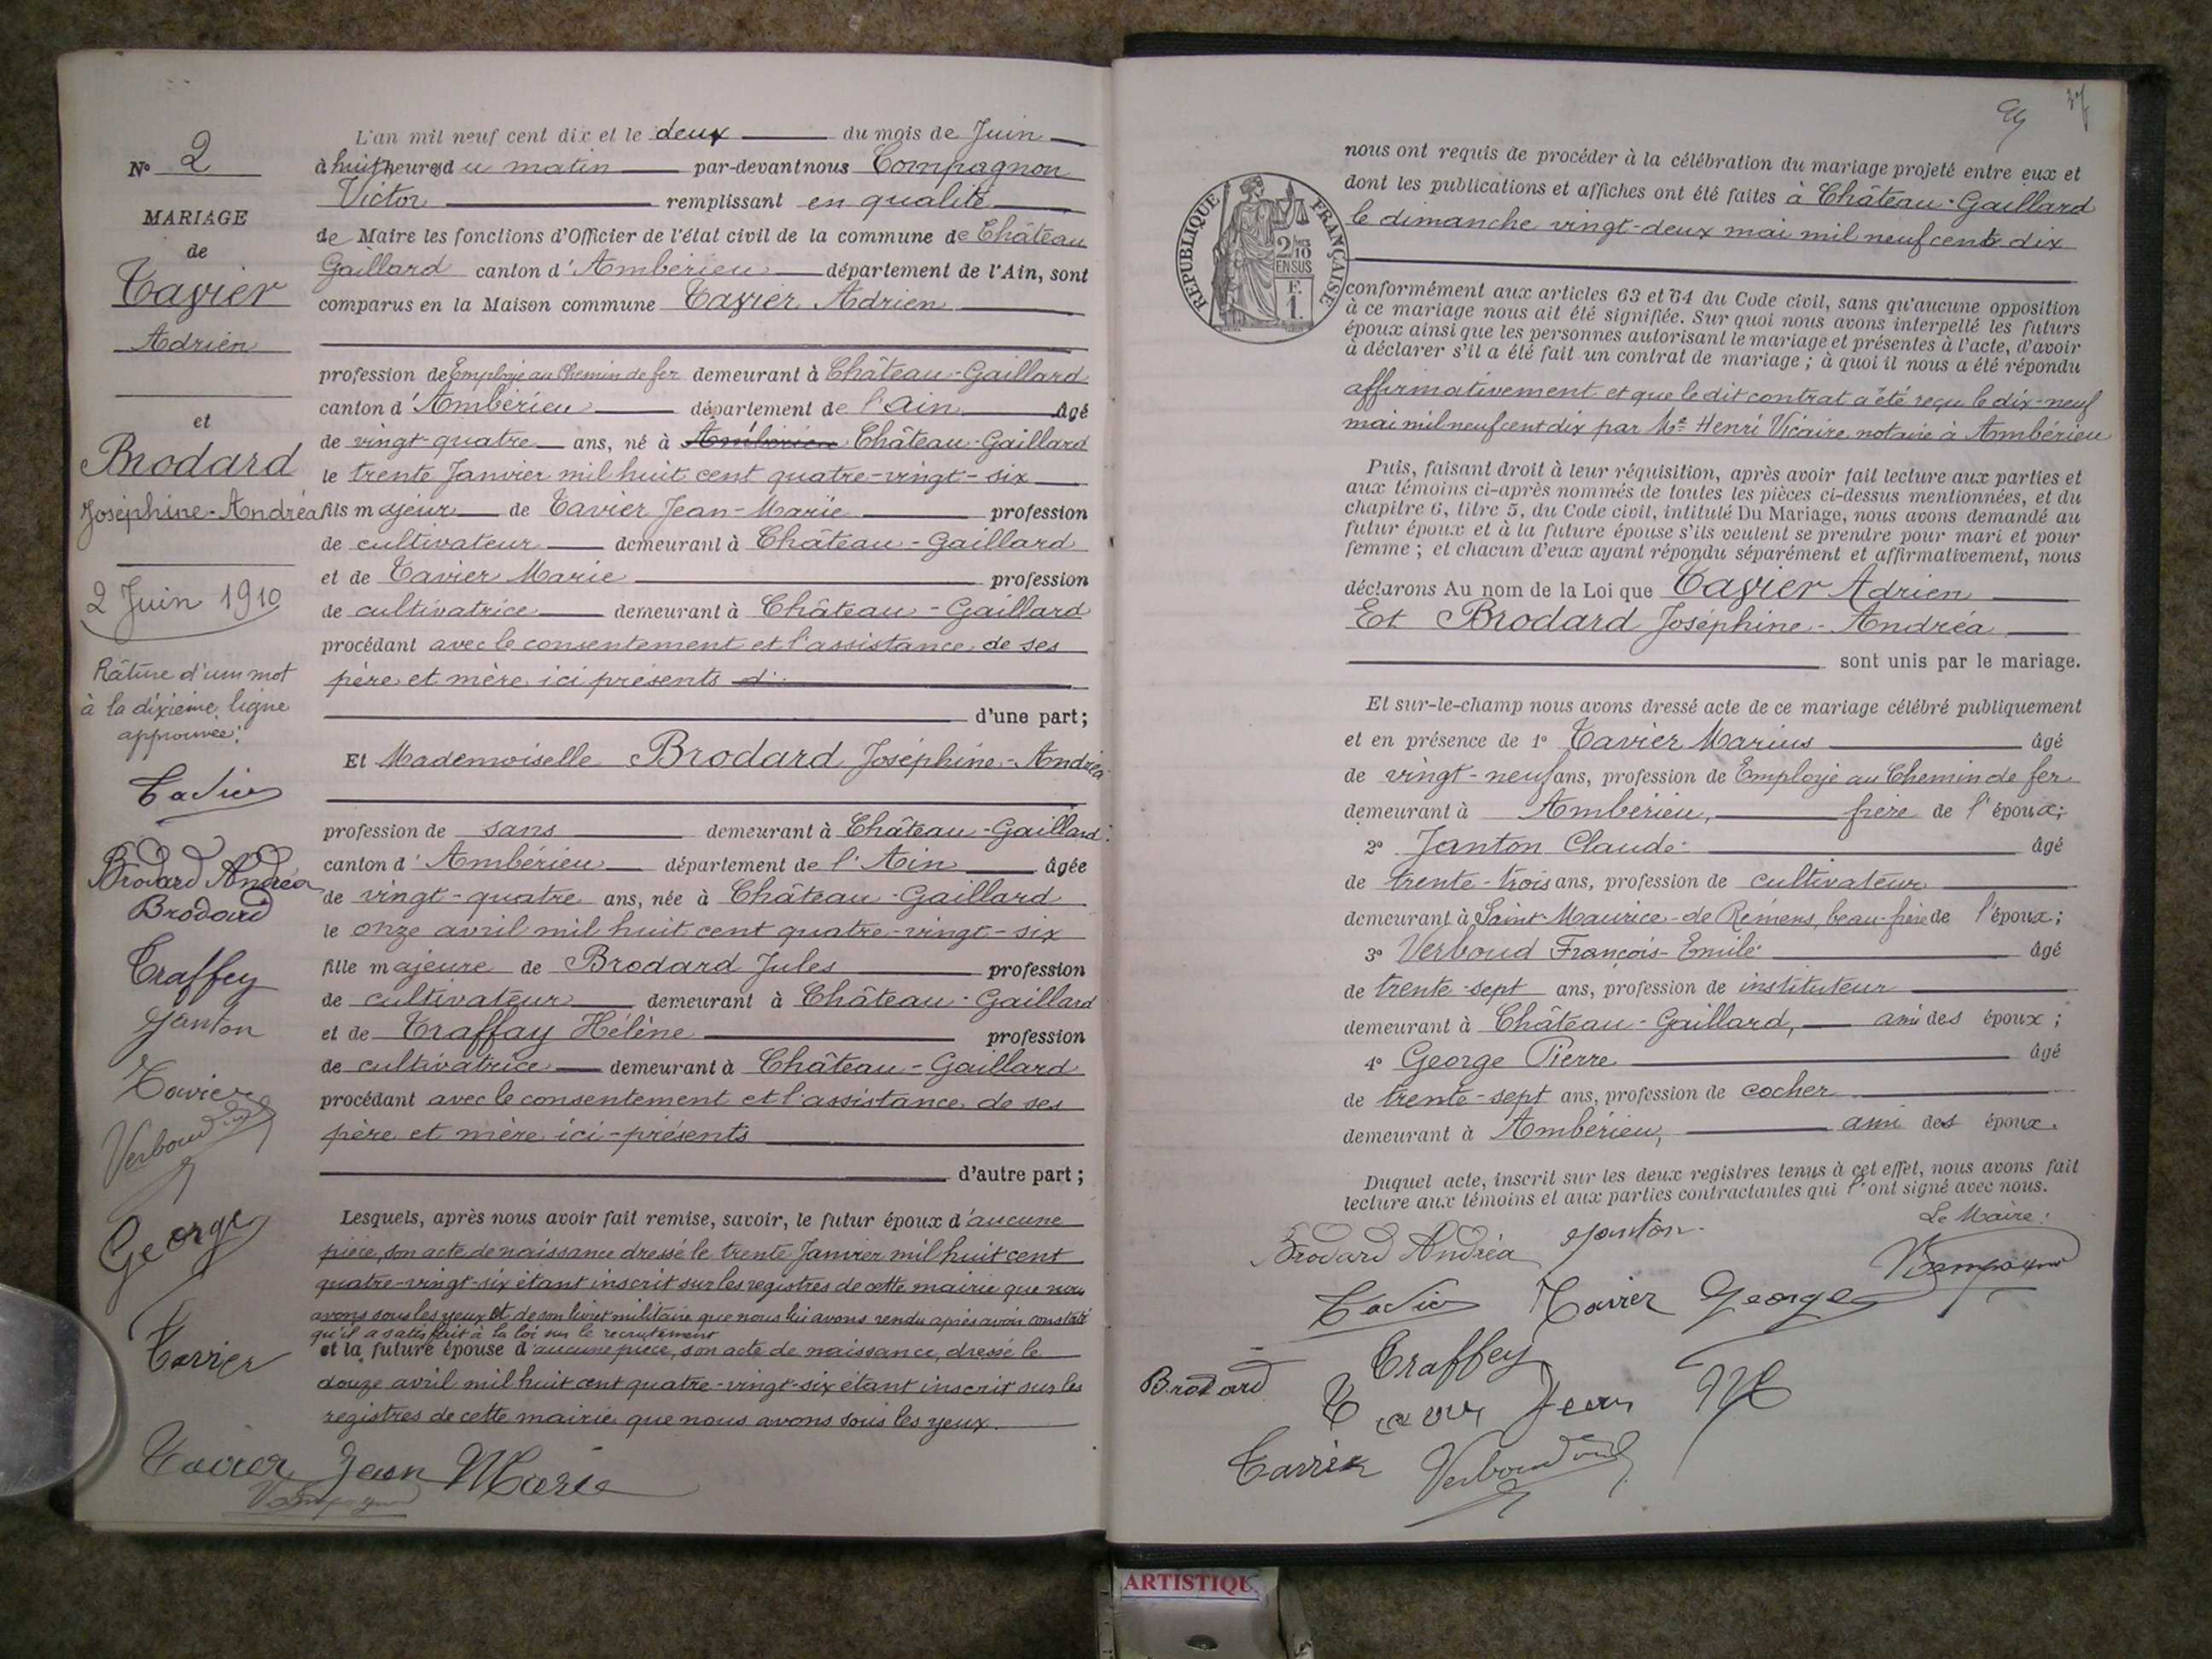 N° 2
MARIAGE
de
Tavier
Adrien
et
Brodard
Joséphine-Andréa
2 Juin 1910
Râture d'un mot
à la dixième ligne
approuvée.
Tavier
Brodard Andréa
Brodard
Traffey
Janton
Tavier
Verboud
George
Tavier
Tavier Jean Marie
L'an mil neuf cent dix et le deux du mois de Juin
à huit heures du matin par-devant nous Compagnon
Victor remplissant en qualité
de Maire les fonctions d'Officier de l'état civil de la commune de Château
Gaillard canton d'Ambérieu département de l'Ain, sont
comparus en la Maison commune Tavier Adrien
profession de Employé au Chemin de fer demeurant à Château-Gaillard
canton d'Ambérieu département de l'Ain âgé
de vingt-quatre ans, né à Ambérieu Château-Gaillard
le trente Janvier mil huit cent quatre-vingt-six
fils majeur de Tavier Jean-Marie profession
de cultivateur demeurant à Château-Gaillard
et de Tavier Marie profession
de cultivatrice demeurant à Château-Gaillard
procédant avec le consentement et l'assistance de ses
père et mère ici présents d'
d'une part;
Et Mademoiselle Brodard Joséphine-Andréa
profession de sans demeurant à Château-Gaillard
canton d'Ambérieu département de l'Ain âgée
de vingt-quatre ans, née à Château-Gaillard
le onze avril mil huit cent quatre-vingt-six
fille majeure de Brodard Jules profession
de cultivateur demeurant à Château-Gaillard
et de Traffay Hélène profession
de cultivatrice demeurant à Château-Gaillard
procédant avec le consentement et l'assistance de ses
père et mère ici-présents
d'autre part;
Lesquels, après nous avoir fait remise, savoir, le futur époux d'aucune
pièce, son acte de naissance dressé le trente Janvier mil huit cent
quatre-vingt-six étant inscrit sur les registres de cette mairie que nous
avons sous les yeux et de son livret militaire que nous lui avons rendu après avoir constaté
qu'il a satisfait à la loi sur le recrutement
et la future épouse d'aucune pièce, son acte de naissance, dressé le
douze avril mil huit cent quatre-vingt-six étant inscrit sur les
registres de cette mairie que nous avons sous les yeux.
RÉPUBLIQUE FRANÇAISE
2/10
EN SUS
F.
1.
nous ont requis de procéder à la célébration du mariage projeté entre eux et
dont les publications et affiches ont été faites à Château-Gaillard
le dimanche vingt-deux mai mil neuf cent dix
conformément aux articles 63 et 64 du Code civil, sans qu'aucune opposition
à ce mariage nous ait été signifiée. Sur quoi nous avons interpellé les futurs
époux ainsi que les personnes autorisant le mariage et présentes à l'acte, d'avoir
à déclarer s'il a été fait un contrat de mariage ; à quoi il nous a été répondu
affirmativement et que le dit contrat a été reçu le dix-neuf
mai mil neuf cent dix par Me Henri Vicaire notaire à Ambérieu
Puis, faisant droit à leur réquisition, après avoir fait lecture aux parties et
aux témoins ci-après nommés de toutes les pièces ci-dessus mentionnées, et du
chapitre 6, titre 5, du Code civil, intitulé Du Mariage, nous avons demandé au
futur époux et à la future épouse s'ils veulent se prendre pour mari et pour
femme ; et chacun d'eux ayant répondu séparément et affirmativement, nous
déclarons Au nom de la Loi que Tavier Adrien
Et Brodard Joséphine-Andréa
sont unis par le mariage.
Et sur-le-champ nous avons dressé acte de ce mariage célébré publiquement
et en présence de 1° Tavier Marius âgé
de vingt-neuf ans, profession de Employé au Chemin de fer
demeurant à Ambérieu, frère de l'époux;
2° Janton Claude âgé
de trente-trois ans, profession de cultivateur
demeurant à Saint-Maurice-de Rémens, beau-frère de l'époux;
3° Verboud François-Emile âgé
de trente-sept ans, profession de instituteur
demeurant à Château-Gaillard, ami des époux ;
4° George Pierre âgé
de trente-sept ans, profession de cocher
demeurant à Ambérieu, ami des époux.
Duquel acte, inscrit sur les deux registres tenus à cet effet, nous avons fait
lecture aux témoins et aux parties contractantes qui l'ont signé avec nous.
Le Maire:
Brodard Andréa Janton
Tavier Tavier George
Traffey
Brodard
Jean M
Tavier Verboud
ARTISTIQU